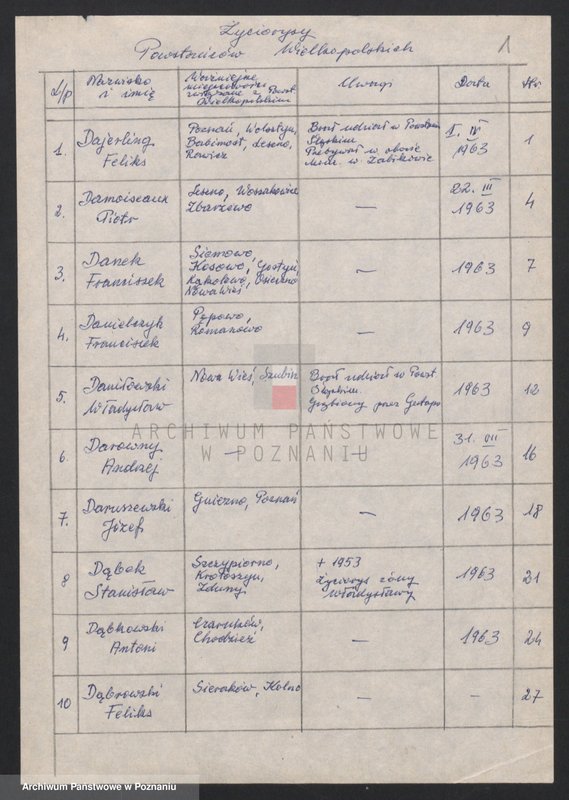 Życiorysy
Powstańców Wielkopolskich
1
L/p
Nazwisko
i imię
Ważniejsze
miejscowości
związane z Powst.
Wielkopolskim
Uwagi
Data
Nr
1.
Dajerling
Feliks
Poznań, Wolsztyn,
Babimost, Leszno,
Rawicz
Brał udział w Powstaniu
Śląskim
Przebywał w obozie
w Żabikowie
I. IV
1963
1
2.
Damoiseaux
Piotr
Leszno,
Zbarzewo
—
22. III
1963
4
3.
Danek
Franciszek
Siemowo,
Kosowo, Gostyń,
Kąkolewo, Osieczno
Nowa Wieś
—
1963
7
4.
Danielczyk
Franciszek
Pępowo,
Romanowo
—
1963
9
5.
Daniłowski
Władysław
Nowa Wieś, Szubin
Brał udział w Powst
Śląskim.
przez Gestapo
1963
12
ARCHIWUM PAŃSTWOWE
W POZNANIU
6.
Darowny
Andrzej
—
—
31. VII
1963
16
7.
Daruszewski
Józef
Gniezno, Poznań
—
1963
18
8
Dąbek
Stanisław
Szczypiorno,
Krotoszyn,
Zduny
+ 1953
Życiorys żony
Władysławy
1963
21
9
Dąbkowski
Antoni
Czarnków,
Chodzież
—
1963
24
10
Dąbrowski
Feliks
Sieraków, Kolno
—
—
27
Archiwum Państwowe w Poznaniu